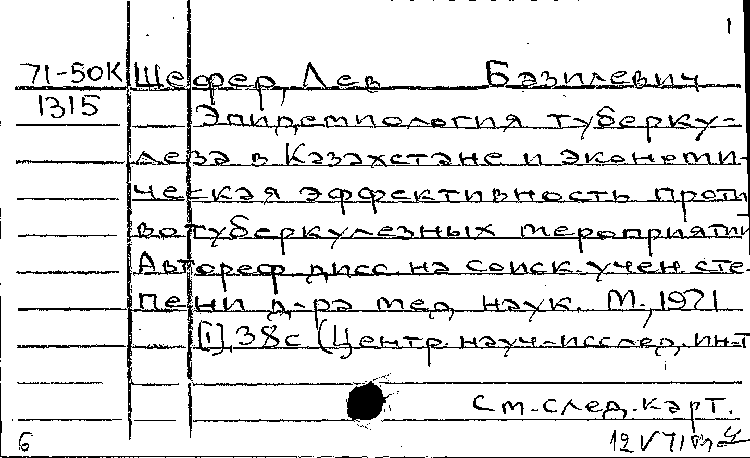 1
71-50К Шефер, Лев Базилевич
1315 Эпидемиология туберку-
леза в Казахстане и экономи-
ческая эффективность проти
вотуберкулезных мероприятий
Автореф дисс. на соиск. учен. сте-
пени д-ра мед. наук. М., 1971
[1], 38с (Центр. науч.-исслед. ин-т
См. след. карт.
6 12 V 71